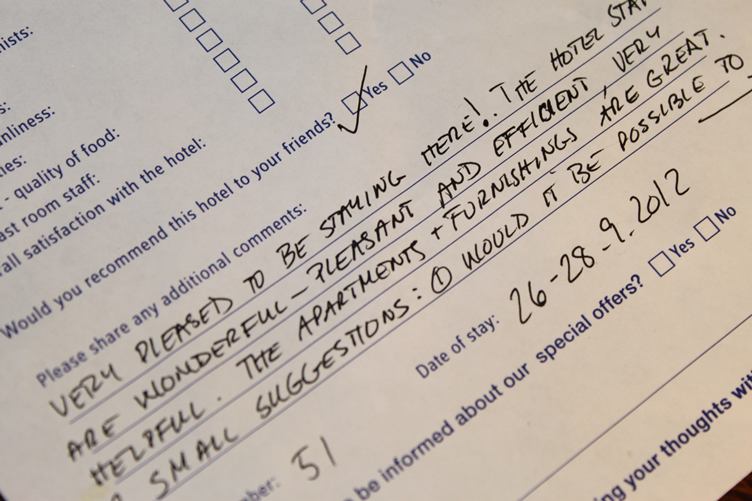 Would you recommend this hotel to your friends? Yes No
Please share any additional comments:
VERY PLEASED TO BE STAYING HERE!. THE HOTEL
ARE WONDERFUL - PLEASANT AND EFFICIENT, VERY
HELPFUL. THE APARTMENTS + FURNISHINGS ARE GREAT.
SMALL SUGGESTIONS: ① WOULD IT BE POSSIBLE TO
Date of stay: 26-28-9.2012
51
be informed about our special offers? Yes No
quality of food:
room staff:
satisfaction with the hotel:
your thoughts